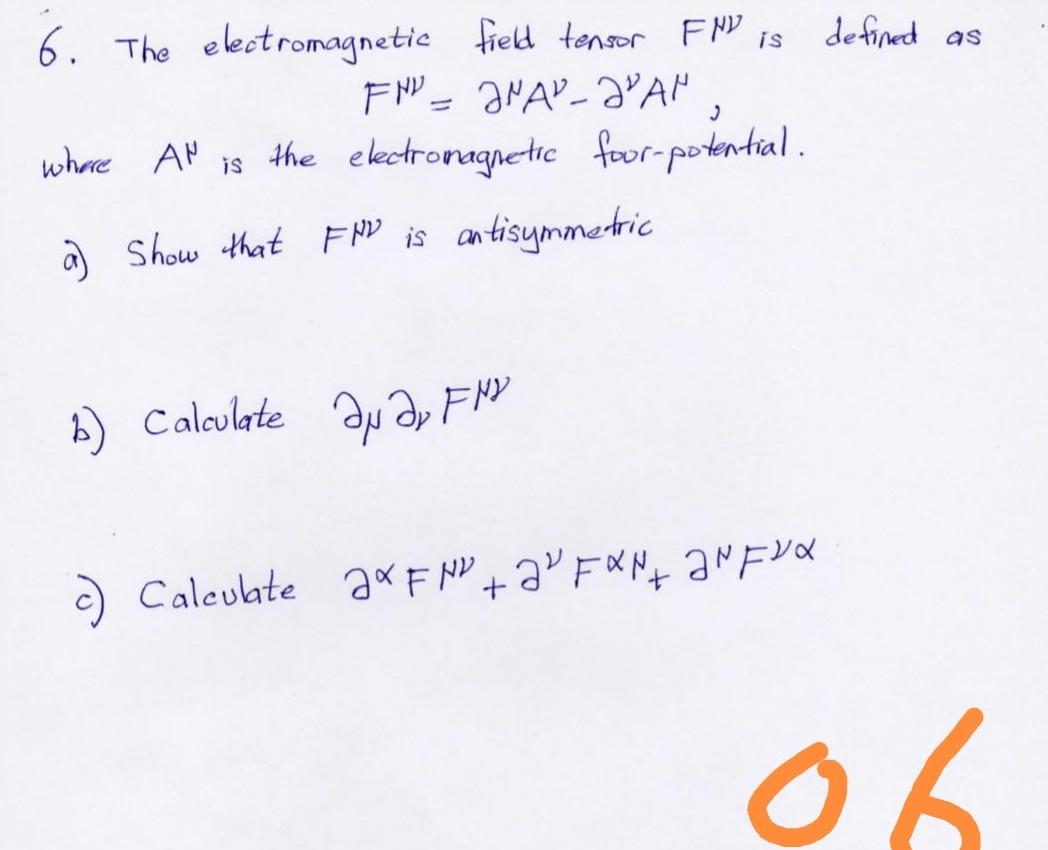 6. The electromagnetic field tensor F^{μν} is defined as
F^{μν} = ∂^μA^ν - ∂^νA^μ,
where A^μ is the electromagnetic four-potential.
a) Show that F^{μν} is antisymmetric
b) Calculate ∂_μ∂_νF^{μν}
c) Calculate ∂^αF^{μν} + ∂^νF^{αμ} + ∂^μF^{να}
06